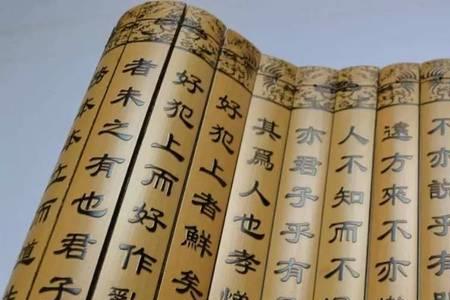 不亦說乎有
遠方來不亦
人不知而不
亦君子乎有
其爲人也孝悌
好犯上者鮮矣
好犯上而好作亂
者未之有也君子
本本立而道